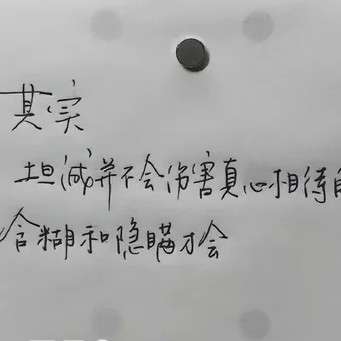 其实
坦诚并不会伤害真心相待
含糊和隐瞒才会